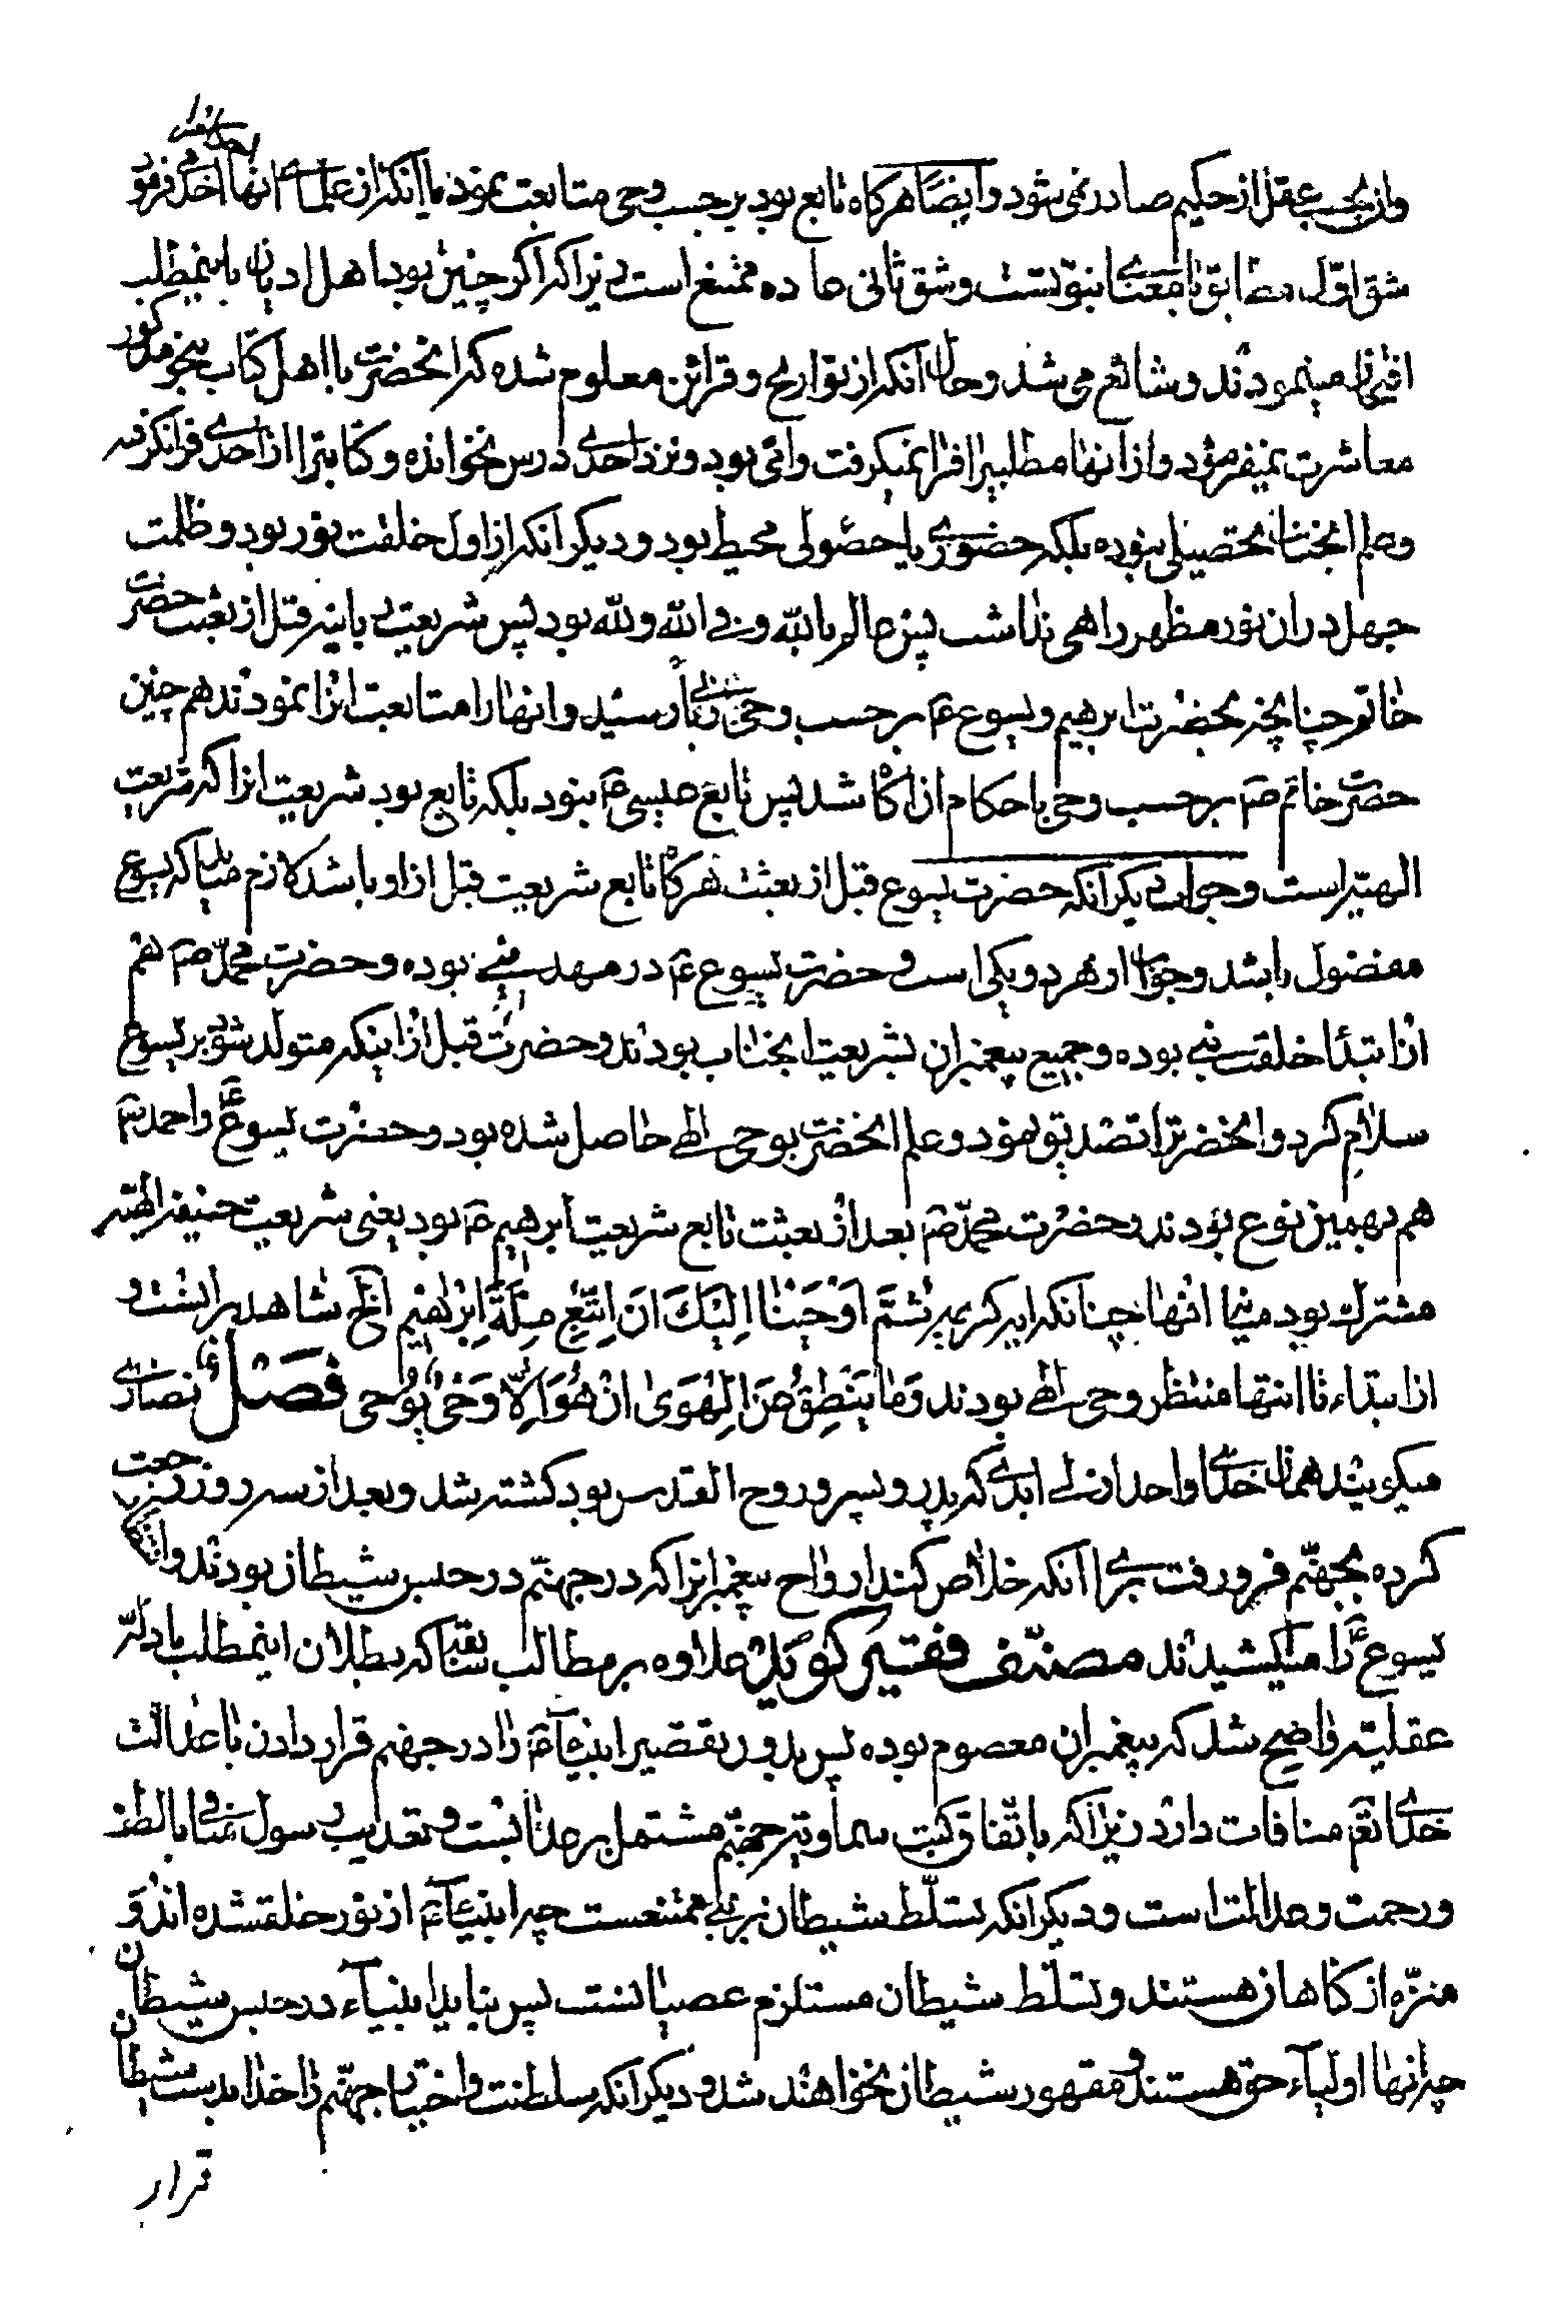 واز بحسب عقل از حکیم صادر نمی شود وایضًا هرکاه تابع بود بر حسب وحی متابعت نمود یا انکه از علمای انها اخذ می فرمود
شق اوّل مطابق با معنای نبوتست وشق ثانی عاده ممتنع است زیرا که اکر چنین بود اهل ادیان باینمطلب
افتخار مینمودند وشائع می شد وحال انکه از تواریخ وقرائن معلوم شده که انحضرت با اهل کتاب بنحو مذکور
معاشرت نمیفرمود واز انها مطلبیرا فرا نمیکرفت وامّی بود ونزد احدی درس نخوانده وکتابیرا از احدی فرانکرفته
وعلم انجناب تحصیلی نبوده بلکه حضوری یا حصولی محیط بود ودیکر انکه از اول خلقت نور بود وظلمت
جهل در ان نور مظهر راهی نداشت پس عالم بالله وفی الله ولله بود پس شریعت باینه قبل از بعثت حضرت
خاتم چنانچه بحضرت ابرهیم ویسوع ع بر حسب وحی ربّانی رسید وانها را متابعت انرا نمودند هم چنین
حضرت خاتم ص بر حسب وحی باحکام از آکاه شد پس تابع عیسی ع نبود بلکه تابع بود شریعت انرا که شریعت
الهیّه است وجواب دیکر انکه حضرت یسوع قبل از بعثت هرکاه تابع شریعت قبل از او باشد لازم میاید که یسوع
مفضول باشد وجواب از هر دو یکی است وحضرت یسوع ع در مهد نبی بوده وحضرت محمّد ص هم
از ابتدا خلقت نبی بوده وجمیع پیغمبران بشریعت انجناب بودند وحضرت قبل از اینکه متولد شود بر یسوع
سلام کرد وانحضرترا تصدیق نمود وعلم انحضرت بوحی الهی حاصل شده بود وحضرت یسوع ع واحمد ص
هم بهمین نوع بودند وحضرت محمّد ص بعد از بعثت تابع شریعت ابرهیم ع بود یعنی شریعت حنیفه الهیّه
مشترک بود میان انها چنانکه ایه کریمه ثُمَّ اَوْحَیْنا اِلَیْکَ اَنِ اتَّبِعْ مِلَّةَ اِبْرٰهیمَ الخ شاهد براینست و
از ابتداء تا انتها منتظر وحی الهی بودند وَما یَنْطِقُ عَنِ الْهَوٰی اِنْ هُوَ اِلّا وَحْیٌ یُوحی فصل نصاری
میکویند همان خدای واحد ازلی ابدی که پدر وپسر وروح القدس بود کشته شد وبعد از سه روز رجعت
کرده بجهنّم فرو رفت برای انکه خلاص کند ارواح پیغمبرانرا که در جهنّم در حبس شیطان بودند وانتظار
یسوع ع را میکشیدند مصنّف فقیر کوید علاوه بر مطالب سابقه که بطلان اینمطلب بادلّه
عقلیّه واضح شد که پیغمبران معصوم بوده پس بدون تقصیر انبیاء ع را در جهنم قرار دادن با عدالت
خدای تعم منافات دارد زیرا که باتّفاق کتب سماویّه جهنّم مشتمل بر عذابست وتعذیب رسول منافی با لطف
ورحمت وعدالت است ودیکر انکه تسلّط شیطان بر نبی ممتنعست چه انبیاء ع از نور خلقشده اند و
منزّه از کناهان هستند وتسلّط شیطان مستلزم عصیانست پس نباید انبیاء در حبس شیطان
چه انها اولیاء حق هستند ومقهور شیطان نخواهند شد ودیکر انکه سلطنت واختیار جهنّم را خدا بدست شیطان
قرار